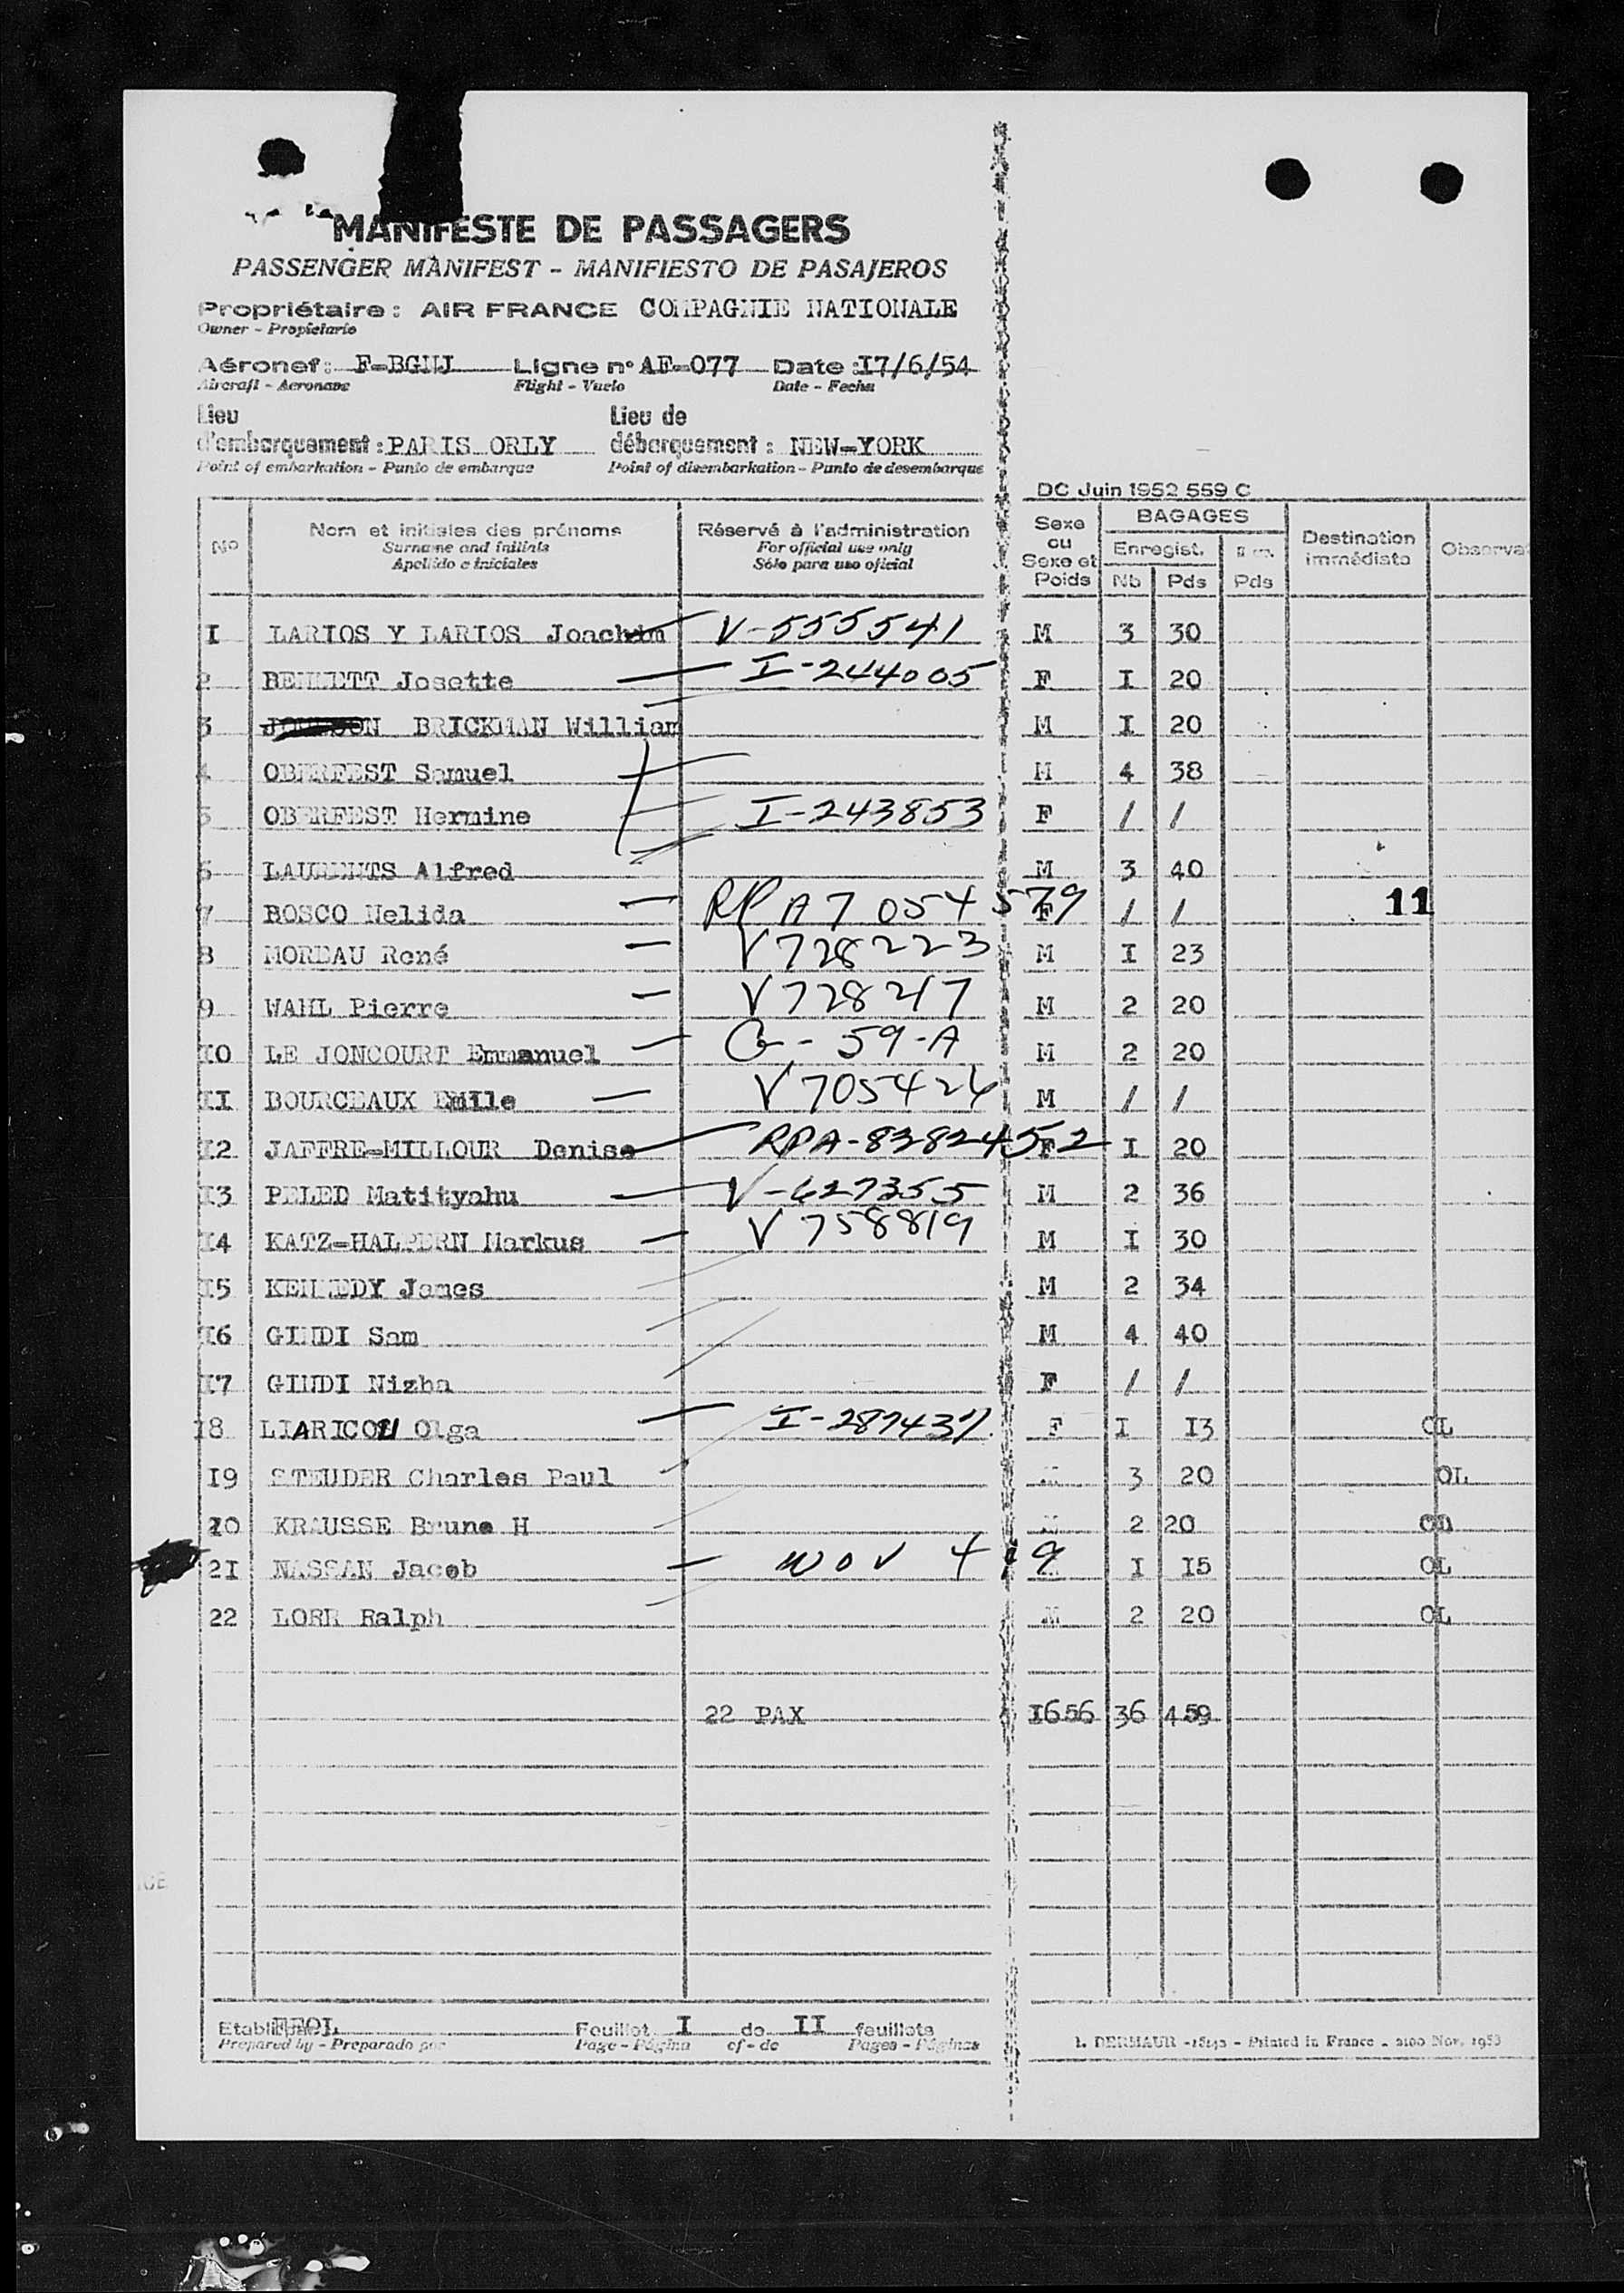 MANIFESTE DE PASSAGERS
PASSENGER MANIFEST - MANIFIESTO DE PASAJEROS
Propriétaire : AIR FRANCE COMPAGNIE NATIONALE
Owner - Propietario
Aéronef : F-BGNJ Ligne n° AF-077 Date : I7/6/54
Aircraft - Aeronave Flight - Vuelo Date - Fecha
Lieu Lieu de
d'embarquement : PARIS ORLY débarquement : NEW-YORK
Point of embarkation - Punto de embarque Point of disembarkation - Punto de desembarque
DC Juin 1952 559 C
N° Nom et initiales des prénoms Réservé à l'administration Sexe ou Sexe et Poids BAGAGES Destination immédiate Observa
Surname and initials For official use only Enregist.
Apellido e iniciales Sólo para uso oficial Nb Pds Pds
I LARIOS Y LARIOS Joachim V-555541 M 3 30
2 BENNETT Josette I-244005 F I 20
3 BRICKMAN William M I 20
4 OBERFEST Samuel M 4 38
5 OBERFEST Hermine I-243853 F / /
6 LAURENTS Alfred M 3 40
7 BOSCO Nelida RP A7 054 579 F / / 11
8 MOREAU René V 728223 M I 23
9 WAHL Pierre V 728217 M 2 20
IO LE JONCOURT Emmanuel G-59-A M 2 20
II BOURCEAUX Emile V 705424 M / /
I2 JAFFRE-MILLOUR Denise RPA-8382452 F I 20
I3 PELED Matityahu V-627355 M 2 36
I4 KATZ-HALPERN Markus V 758819 M I 30
I5 KENNEDY James M 2 34
I6 GINDI Sam M 4 40
I7 GINDI Nizha F / /
18 Olga I-287437 F I I3 OL
I9 STEUDER Charles Paul M 3 20 OL
20 KRAUSSE Brune H M 2 20
2I NASSAN Jacob WOV 419 I I5 OL
22 LORR Ralph M 2 20 OL
22 PAX I656 36 459
Etabli par EFOL Feuillet I de II feuillets
Prepared by - Preparado por Page - Página of - de Pages - Páginas
Printed in France - Nov. 1953